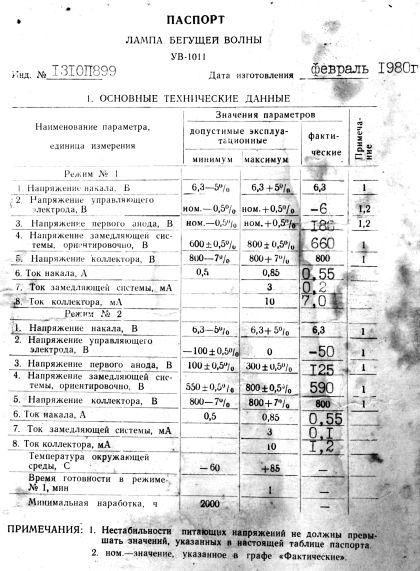 ПАСПОРТ
ЛАМПА БЕГУЩЕЙ ВОЛНЫ
УВ-1011
Инд. № 1310П899 Дата изготовления февраль 1980г
1. ОСНОВНЫЕ ТЕХНИЧЕСКИЕ ДАННЫЕ
Наименование параметра, единица измерения Значения параметров Примеча-ние
допустимые эксплуа-тационные факти-ческие
минимум максимум
Режим № 1
1. Напряжение накала, В 6,3—5% 6,3+5% 6,3 1
2. Напряжение управляющего
электрода, В ном.—0,5% ном.+0,5% —6 1,2
3. Напряжение первого анода, В ном.—0,5% ном.+0,5% 1,2
4. Напряжение замедляющей сис-
темы, ориентировочно, В 600±0,5% 800±0,5% 660 1
5. Напряжение коллектора, В 800—7% 800+7% 800 1
6. Ток накала, А 0,5 0,85 0,55
7. Ток замедляющей системы, мА 3 0,2
8. Ток коллектора, мА 10 7,0
Режим № 2
1. Напряжение накала, В 6,3—5% 6,3+5% 6,3 1
2. Напряжение управляющего
электрода, В —100±0,5% 0 —50 1
3. Напряжение первого анода, В 100±0,5% 300±0,5% 125 1
4. Напряжение замедляющей сис-
темы, ориентировочно, В 550±0,5% 800±0,5% 590 1
5. Напряжение коллектора, В 800—7% 800+7% 800 1
6. Ток накала, А 0,5 0,85 0,55
7. Ток замедляющей системы, мА 3 0,1
8. Ток коллектора, мА 10 1,2
Температура окружающей
среды, С —60 +85 —
Время готовности в режиме
№ 1, мин 1 —
Минимальная наработка, ч 2000 — —
ПРИМЕЧАНИЯ: 1. Нестабильности питающих напряжений не должны превы-
шать значений, указанных в настоящей таблице паспорта.
2. ном.—значение, указанное в графе «Фактические».